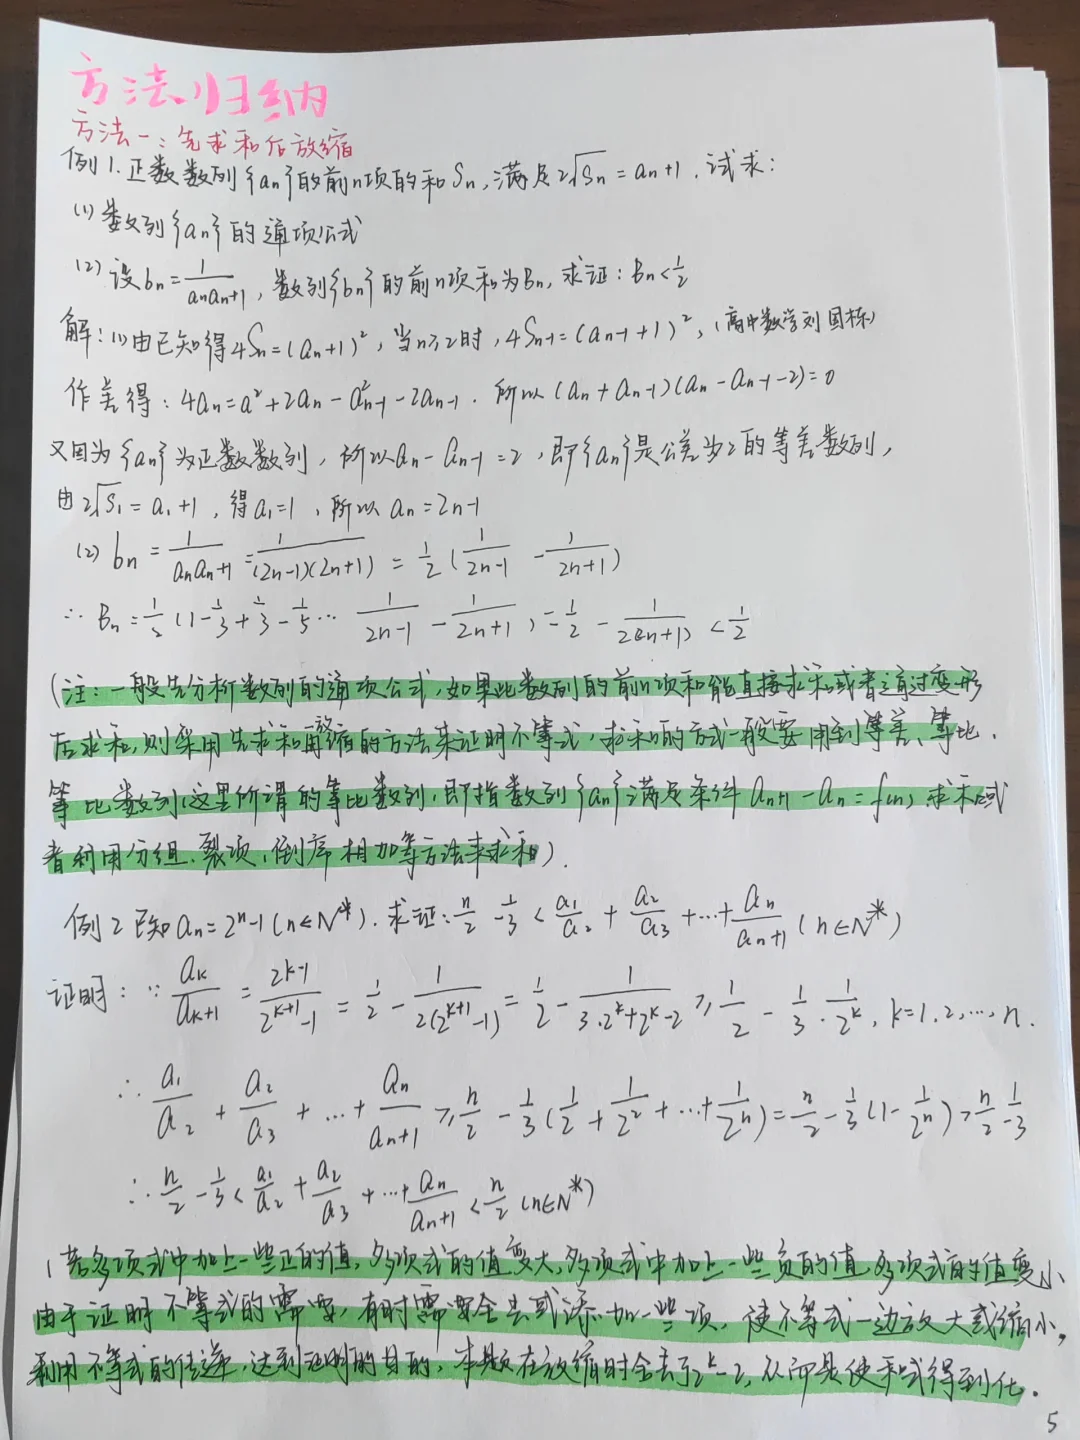 方法归纳
方法一：先求和后放缩
例1.正数数列{an}的前n项的和Sn,满足2√Sn=an+1,试求:
(1)数列{an}的通项公式
(2)设bn=1/(anan+1),数列{bn}的前n项和为Bn,求证:Bn<1/2
解:(1)由已知得4Sn=(an+1)²,当n≥2时,4Sn-1=(an-1+1)²,(高中数学刘国栋)
作差得:4an=a²+2an-a²n-1-2an-1.所以(an+an-1)(an-an-1-2)=0
又因为{an}为正数数列,所以an-an-1=2,即{an}是公差为2的等差数列,
由2√S1=a1+1,得a1=1,所以an=2n-1
(2)bn=1/(anan+1)=1/((2n-1)(2n+1))=1/2(1/(2n-1)-1/(2n+1))
∴Bn=1/2(1-1/3+1/3-1/5…1/(2n-1)-1/(2n+1))=1/2-1/(2(2n+1))<1/2
(注:一般先分析数列的通项公式,如果此数列的前n项和能直接求和或者通过变形
后求和,则采用先求和再放缩的方法来证明不等式,求和的方式一般要用到等差、等比、
等比数列(这里所谓的等比数列,即指数列{an}满足条件an+1-an=f(n)求和或
者利用分组、裂项、倒序相加等方法来求和).
例2已知an=2ⁿ-1(n∈N*).求证:n/2-1/3<a1/a2+a2/a3+…+an/an+1(n∈N*)
证明:∵ak/ak+1=2k-1/(2^(k+1)-1)=1/2-1/(2(2^(k+1)-1))=1/2-1/(3·2^k+2^k-2)≥1/2-1/3·1/2^k,k=1.2,…,n.
∴a1/a2+a2/a3+…+an/an+1≥n/2-1/3(1/2+1/2²+…+1/2ⁿ)=n/2-1/3(1-1/2ⁿ)>n/2-1/3
∴n/2-1/3<a1/a2+a2/a3+…+an/an+1<n/2(n∈N*)
(若多项式中加上一些正的值,多项式的值变大,多项式中加上一些负的值,多项式的值变小
由于证明不等式的需要,有时需要舍去或添加一些项,使不等式一边放大或缩小,
利用不等式的传递,达到证明的目的,本题在放缩时舍去了2^k-2,从而是使和式得到化.
5